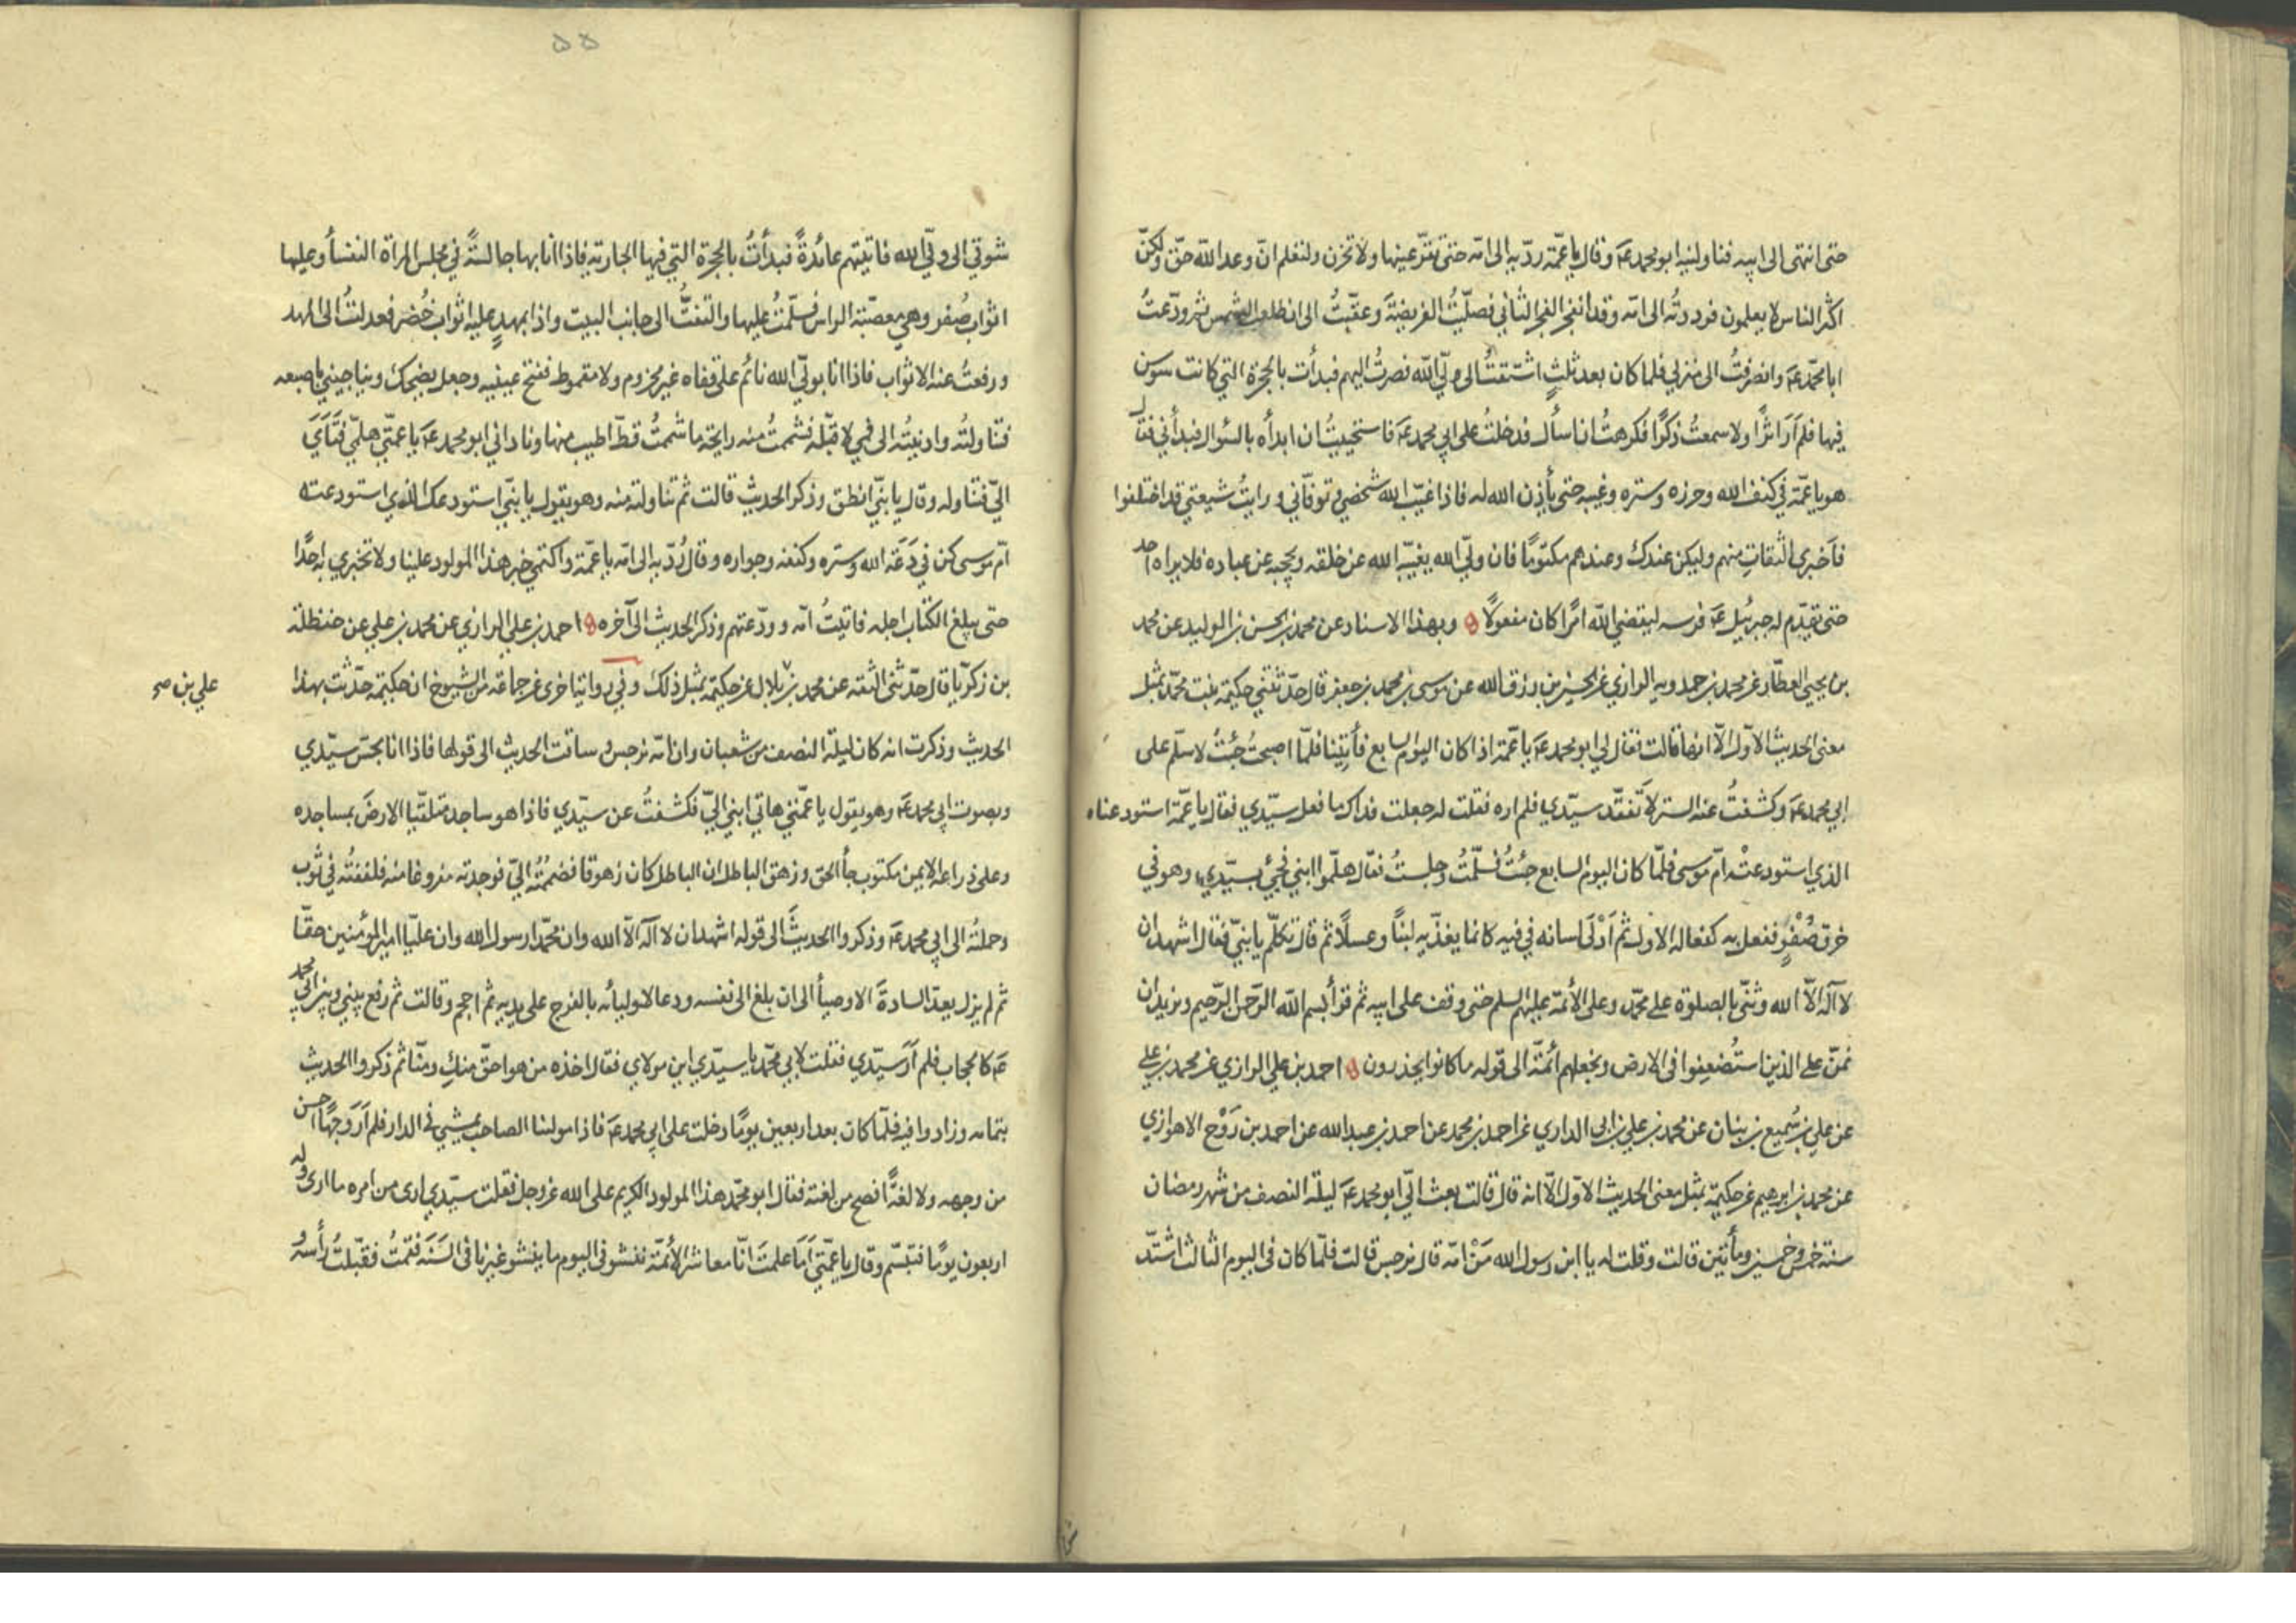 حتى انتهى الى ابيه فناولنيه ابو محمد عم وقال يا عمّة ردّيه الى امّه حتى تقرّ عينها ولا تحزن ولتعلم انّ وعد الله حقّ ولكنّ
اكثر الناس لا يعلمون فرددتُه الى امّه وقد انفجر الفجر الثاني فصلّيتُ الفريضة وعقّبتُ الى ان طلعت الشمس ثم ودّعتُ
ابا محمّد عم وانصرفتُ الى منزلي فلما كان بعد ثلثٍ اشتقتُ الى وليّ الله فصرتُ اليهم فبدأت بالحجرة التي كانت سوسن
فيها فلم أرَ اثرًا ولا سمعتُ ذكرًا فكرهتُ ان اسأل فدخلتُ على ابي محمد عم فاستحييتُ ان ابدأه بالسؤال فبدأني فقال
هو يا عمّة في كنف الله وحرزه وستره وغيبه حتى يأذن الله له فاذا غيّب الله شخصي وتوفّاني ورايتُ شيعتي قد اختلفوا
فأخبري الثقاتِ منهم وليكن عندك وعندهم مكتومًا فان وليّ الله يغيّبه الله عن خلقه ويحجبه عن عباده فلا يراه احد
حتى يقدّم له جبرئيل عم فرسه ليقضي الله امرًا كان مفعولًا وبهذا الاسناد عن محمد بن الحسن بن الوليد عن محمد
بن يحيى العطّار عن محمد بن حمدويه الرازي عن الحسين بن رزق الله عن موسى بن محمد بن جعفر قال حدّثتني حكيمة بنت محمّد بمثل
معنى الحديث الاوّل الّا انها قالت فقال لي ابو محمد عم يا عمّة اذا كان اليوم السابع فأتينا فلمّا اصبحتُ جئتُ لاسلّم على
ابي محمد عم وكشفتُ عنه الستر لاتفقّد سيّدي فلم اره فقلت له جعلت فداك ما فعل سيّدي فقال يا عمّة استودعناه
الذي استودعتْ امّ موسى فلمّا كان اليوم السابع جئتُ فسلّمتُ وجلستُ فقال هلمّوا ابني فجئ بسيّدي وهو في
خرق صُفْرٍ ففعل به كفعاله الاول ثم أدْلَى لسانه في فيه كانما يغذّيه لبنًا وعسلًا ثم قال تكلّم يا بنيّ فقال اشهد ان
لا اله الّا الله وثنّى بالصلوة على محمّد وعلى الأئمة عليهم السلم حتى وقف على ابيه ثم قرأ بسم الله الرّحمن الرّحيم ونريد ان
نمنّ على الذين استُضعِفوا في الارض ونجعلهم أئمّة الى قوله ما كانوا يحذرون احمد بن علي الرازي عن محمد بن علي
عن علي بن سُميع بن بنان عن محمد بن علي بن ابي الداري عن احمد بن محمد عن احمد بن عبدالله عن احمد بن رَوْح الاهوازي
عن محمد بن ابرهيم عن حكيمة بمثل معنى الحديث الاوّل الّا انه قال قالت بعث اليّ ابو محمد عم ليلة النصف من شهر رمضان
سنة خمس وخمسين ومأتين قالت وقلت له يا ابن رسول الله مَنْ امّه قال نرجس قالت فلمّا كان في اليوم الثالث اشتدّ
۵۵
شوقي الى وليّ الله فاتيتهم عائدةً فبدأتُ بالحجرة التي فيها الجارية فاذا انا بها جالسةً في مجلس المراة النفسأ وعليها
اثواب صُفر وهي معصّبة الراس فسلّمتُ عليها والتفتُّ الى جانب البيت واذا بمهدٍ عليه اثواب خُضر فعدلتُ الى المهد
ورفعتُ عنه الاثواب فاذا انا بوليّ الله نائم على قفاه غير محزوم ولا مقموط ففتح عينيه وجعل يضحك ويناجيني باصبعه
فتناولتُه وادنيتُه الى فمي لاقبّله فشممتُ منه رايحة ما شممتُ قطّ اطيب منها وناداني ابو محمد عم يا عمّتي هلمّي فتَاي
اليّ فتناوله وقال يا بنيّ انطق وذكر الحديث قالت ثم تناولته منه وهو يقول يا بنيّ استودعك الذي استودعته
امّ موسى كن في دَعَة الله وستره وكنفه وجواره وقال رُدّيه الى امّه يا عمّة واكتمي خبر هذا المولود علينا ولا تخبري به احدًا
حتى يبلغ الكتاب اجله فاتيتُ امّه وودّعتهم وذكر الحديث الى آخره احمد بن علي الرازي عن محمد بن علي عن حنظلة
بن زكريّا قال حدّثني الثقة عن محمد بن بلال عن حكيمة بمثل ذلك وفي رواية اخرى عن جماعة من الشيوخ ان حكيمة حدّثت بهذا
علي بن صح
الحديث وذكرت انه كان ليلة النصف من شعبان وان امّه نرجس وساقت الحديث الى قولها فاذا انا بحسّ سيّدي
وبصوت ابي محمد عم وهو يقول يا عمّتي هاتي ابني اليّ فكشفتُ عن سيّدي فاذا هو ساجد متلقّيا الارضَ بمساجده
وعلى ذراعه الايمن مكتوب جأ الحق وزهق الباطل ان الباطل كان زهوقا فضممتُه اليّ فوجدته مفروغا منه فلففتُه في ثوب
وحملتُه الى ابي محمد عم وذكروا الحديثَ الى قوله اشهد ان لا اله الّا الله وان محمّدا رسول الله وان عليّا امير المؤمنين حقّا
ثم لم يزل يعدّ السادةَ الاوصيأ الى ان بلغ الى نفسه ودعا لاوليائه بالفرج على يديه ثم احجم وقالت ثم رفع بيني وبين ابي محمد
عم كالحجاب فلم أرَ سيّدي فقلت لابي محمّد يا سيّدي اين مولاي فقال اخذه من هو احقّ منكِ ومنّا ثم ذكروا الحديث
بتمامه وزادوا فيه فلمّا كان بعد اربعين يومًا دخلت على ابي محمد عم فاذا مولنا الصاحب يمشي في الدار فلم أرَ وجهًا احسن
من وجهه ولا لغةً افصح من لغته فقال ابو محمّد هذا المولود الكريم على الله عزوجل فقلت سيّدي ارى من امره ما ارى وله
اربعون يومًا فتبسّم وقال يا عمّتي أمَا علمتَ انّا معاشر الأئمّة ننشو في اليوم ما ينشو غيرنا في السَنَة فقمتُ فقبّلتُ رأسه و